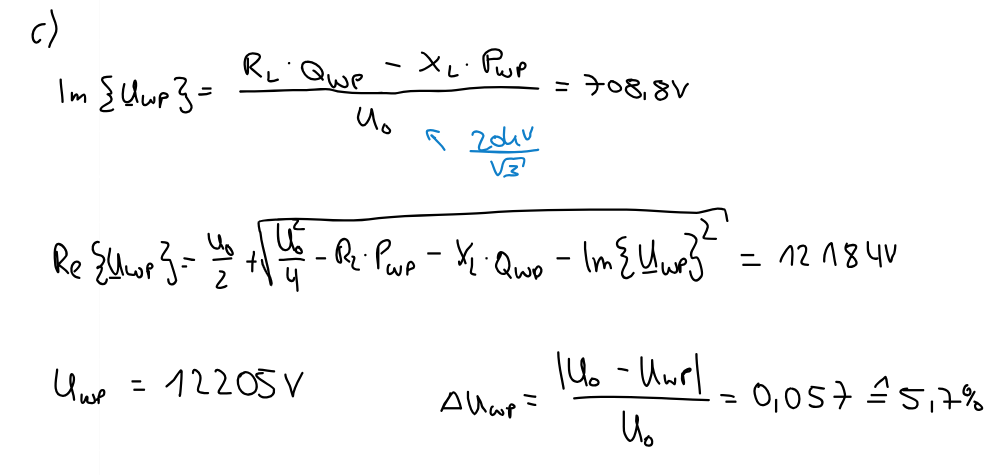 c)
Im {U̲wp} = (R_L · Q_WP − X_L · P_WP) / U_0 = 708,8V
↖ 20kV / √3
Re {U̲wp} = U_0/2 + √(U_0²/4 − R_L · P_WP − X_L · Q_WP − Im{U̲wp}²) = 12184V
U_WP = 12205V
ΔU_WP = |U_0 − U_WP| / U_0 = 0,057 ≙ 5,7%